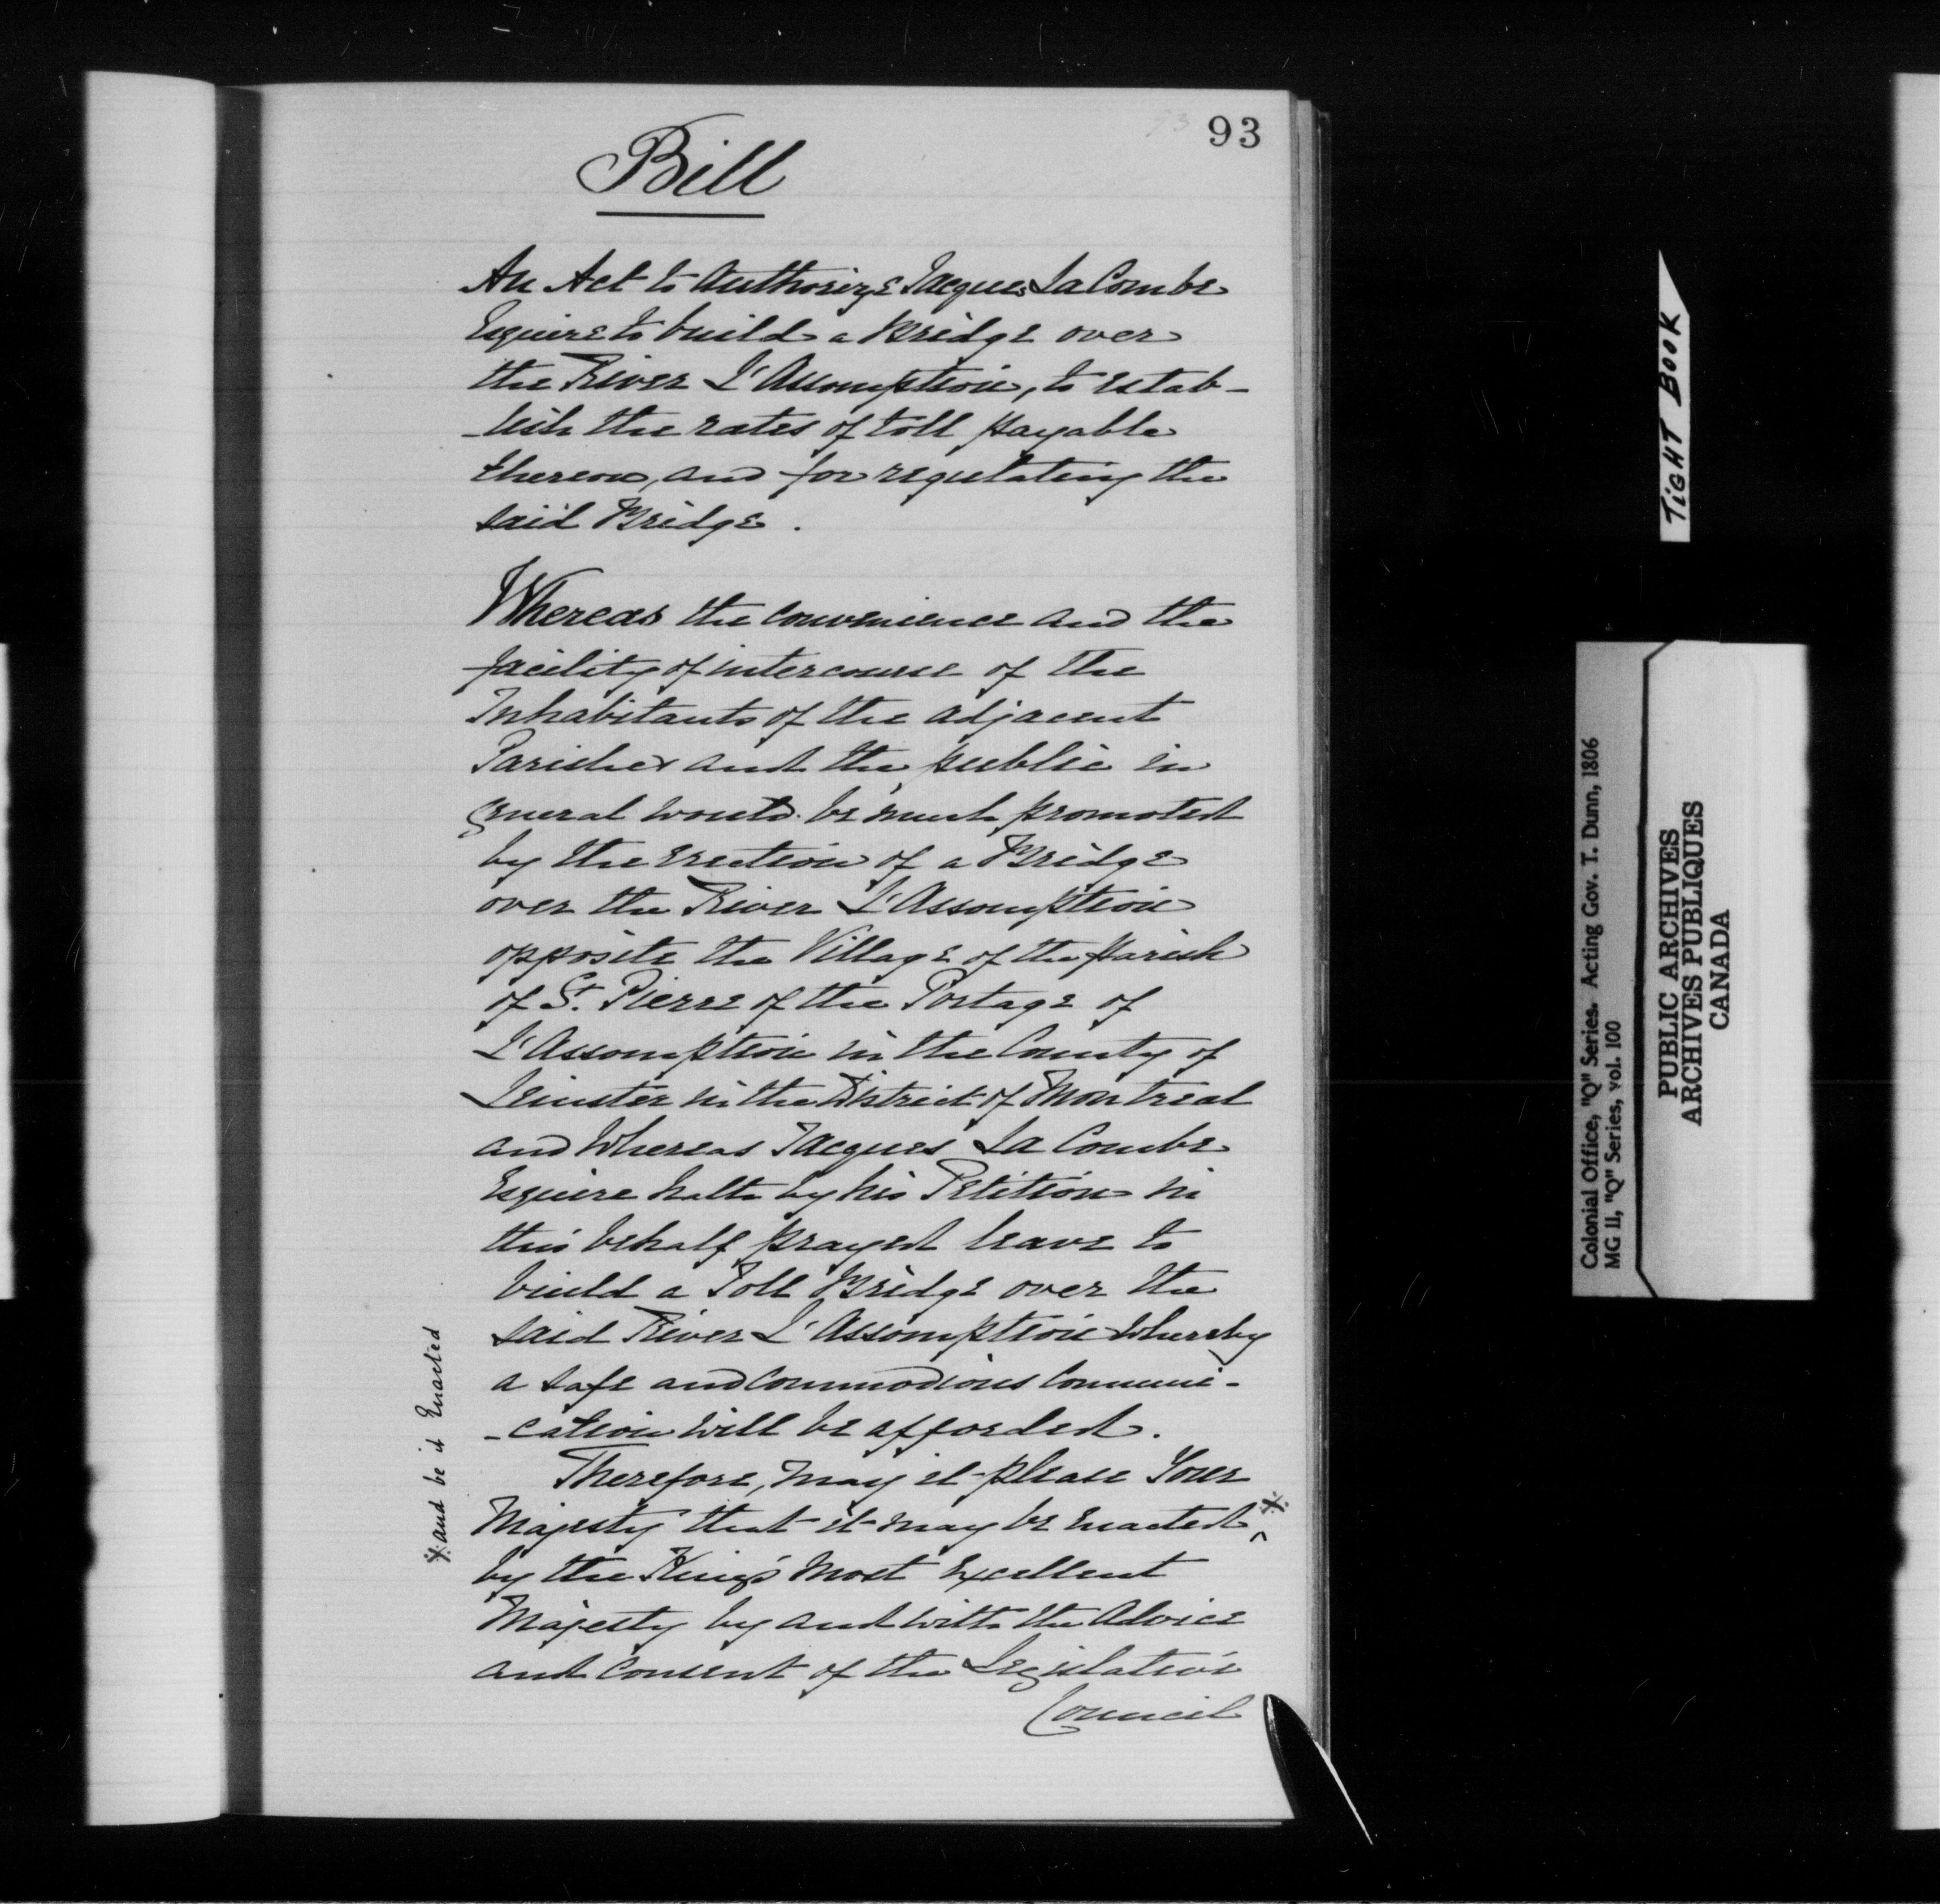 93
93
Bill
An Act to Authorize Jacques La Combe
Esquire to build a Bridge over
the River L'Assomption, to estab-
-lish the rates of toll payable
thereon, and for regulating the
said Bridge.
Whereas the convenience and the
facility of intercourse of the
Inhabitants of the adjacent
Parishes and the public in
general would be much promoted
by the erection of a Bridge
over the River L'Assomption
opposite the Village of the parish
of St. Pierre of the Portage of
L'Assomption in the County of
Leinster in the District of Montreal
and Whereas Jacques La Combe
Esquire hath by his Petition in
this behalf prayed leave to
build a Toll Bridge over the
said River L'Assomption whereby
a safe and commodious communi-
-cation will be afforded.
Therefore, may it please Your
Majesty that it may be enacted ※
by the King's Most Excellent
Majesty by and with the Advice
and consent of the Legislative
Council
※ and be it Enacted
TIGHT BOOK
Colonial Office, "Q" Series. Acting Gov. T. Dunn, 1806
MG 11, "Q" Series, vol. 100
PUBLIC ARCHIVES
ARCHIVES PUBLIQUES
CANADA